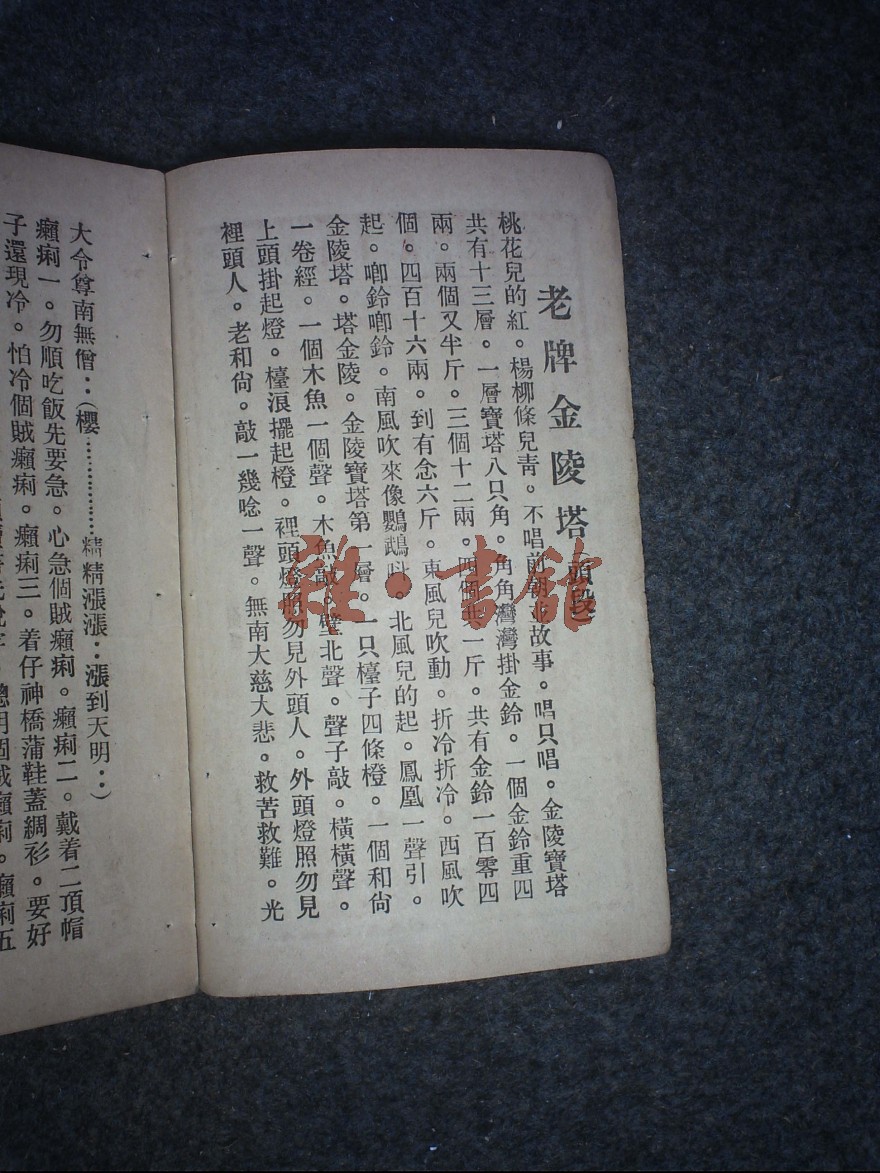 老牌金陵塔 頭段
桃花兒的紅。楊柳條兒靑。不唱前朝並故事。唱只唱。金陵寶塔
共有十三層。一層寶塔八只角。角角灣灣掛金鈴。一個金鈴重四
兩。兩個又半斤。三個十二兩。四個共一斤。共有金鈴一百零四
個。四百十六兩。到有念六斤。東風兒吹動。折冷折冷。西風吹
起。啣鈴啣鈴。南風吹來像鸚鵡叫。北風兒的起。鳳凰一聲引。
金陵塔。塔金陵。金陵寶塔第一層。一只檯子四條橙。一個和尙
一卷經。一個木魚一個聲。木魚敲。壁北聲。聲子敲。橫橫聲。
上頭掛起燈。檯浪擺起橙。裡頭燈照勿見外頭人。外頭燈照勿見
裡頭人。老和尙。敲一幾唸一聲。無南大慈大悲。救苦救難。光
大令尊南無僧：（櫻……………精精漲漲：漲到天明：）
癩痢一。勿順吃飯先要急。心急個賊癩痢。癩痢二。戴着二頂帽
子還現冷。怕冷個賊癩痢。癩痢三。着仔神橋蒲鞋蓋綢衫。要好
聰明個賊癩痢。癩痢五
雅·書館